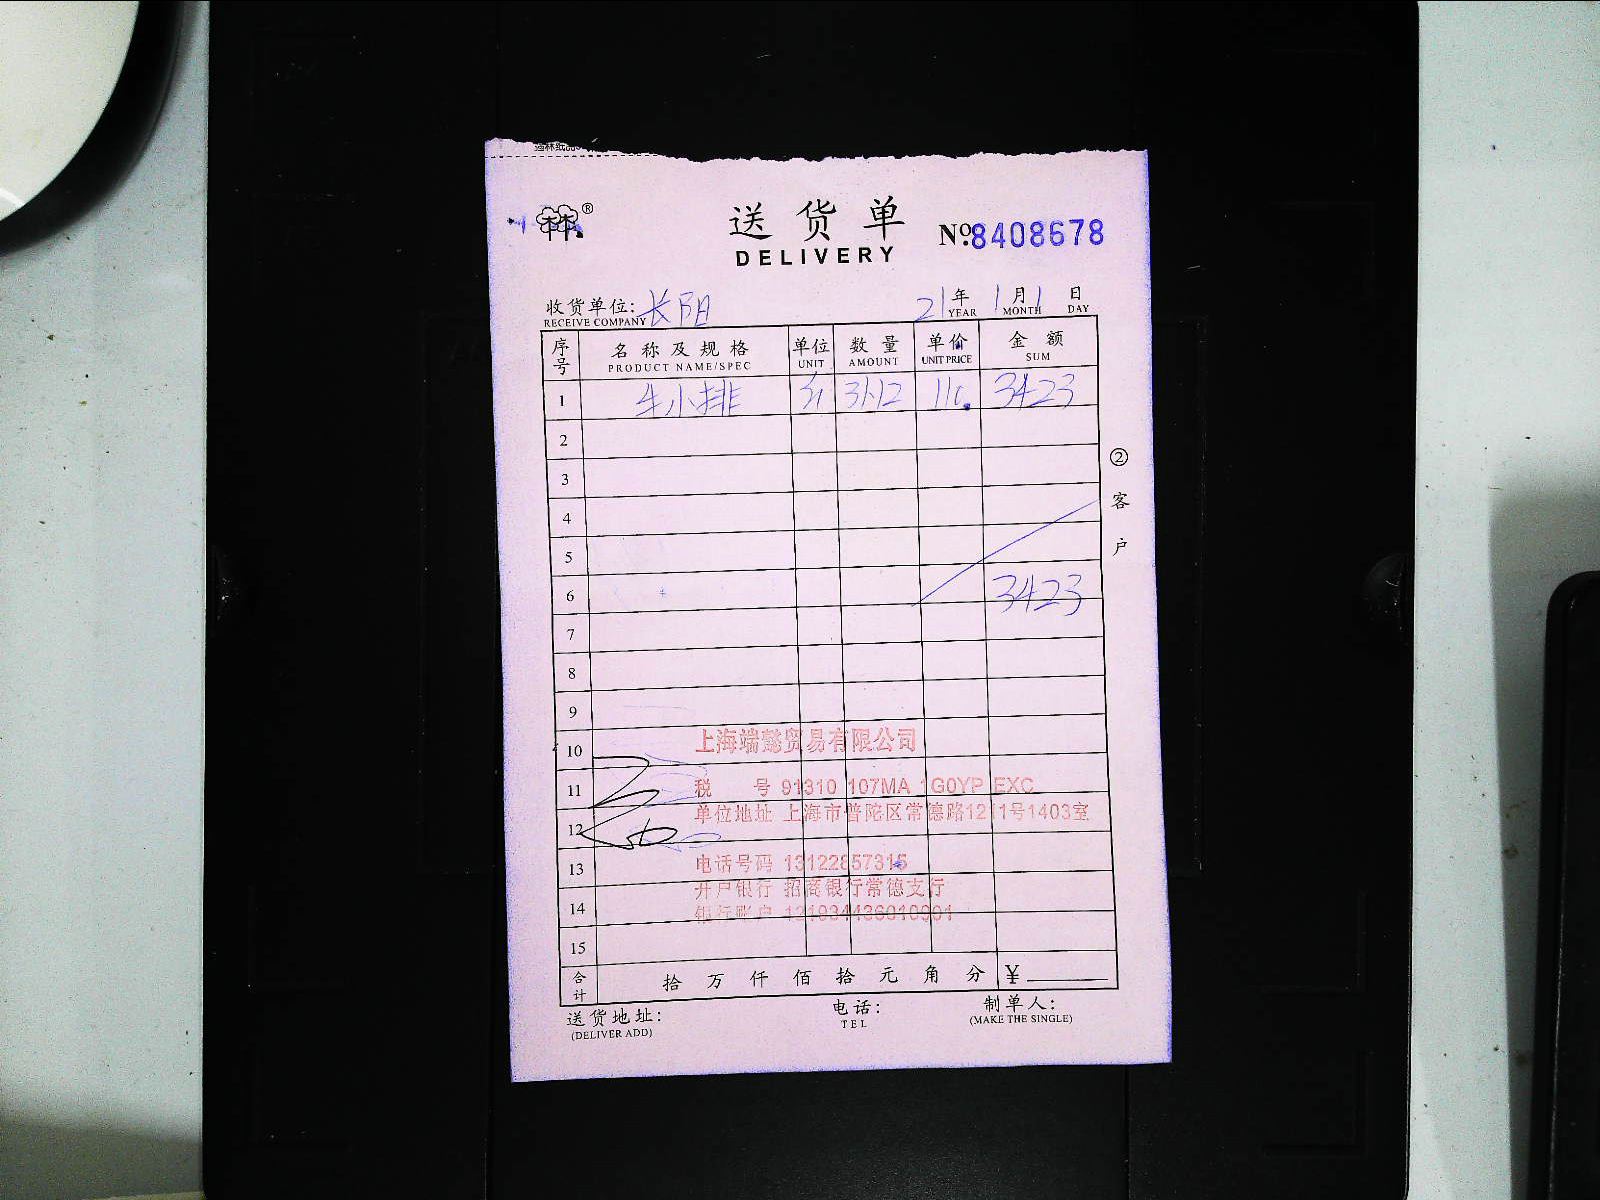 送货单
DELIVERY
№ 8408678
收货单位: 长阳 21年 1月 1日
RECEIVE COMPANY YEAR MONTH DAY
序号 名称及规格 单位 数量 单价 金额
PRODUCT NAME/SPEC UNIT AMOUNT UNIT PRICE SUM
1 牛小排 31.12 110. 3423
2
3
4
5
6 3423
7
8
9
10
11
12
13
14
15
②客户
上海端懿贸易有限公司
税 号 91310 107MA 1G0YP EXC
单位地址 上海市普陀区常德路1211号1403室
电话号码 13122857315
开户银行 招商银行常德支行
银行账户 121934436010901
合计 拾 万 仟 佰 拾 元 角 分 ¥
送货地址: 电话: 制单人:
(DELIVER ADD) TEL (MAKE THE SINGLE)